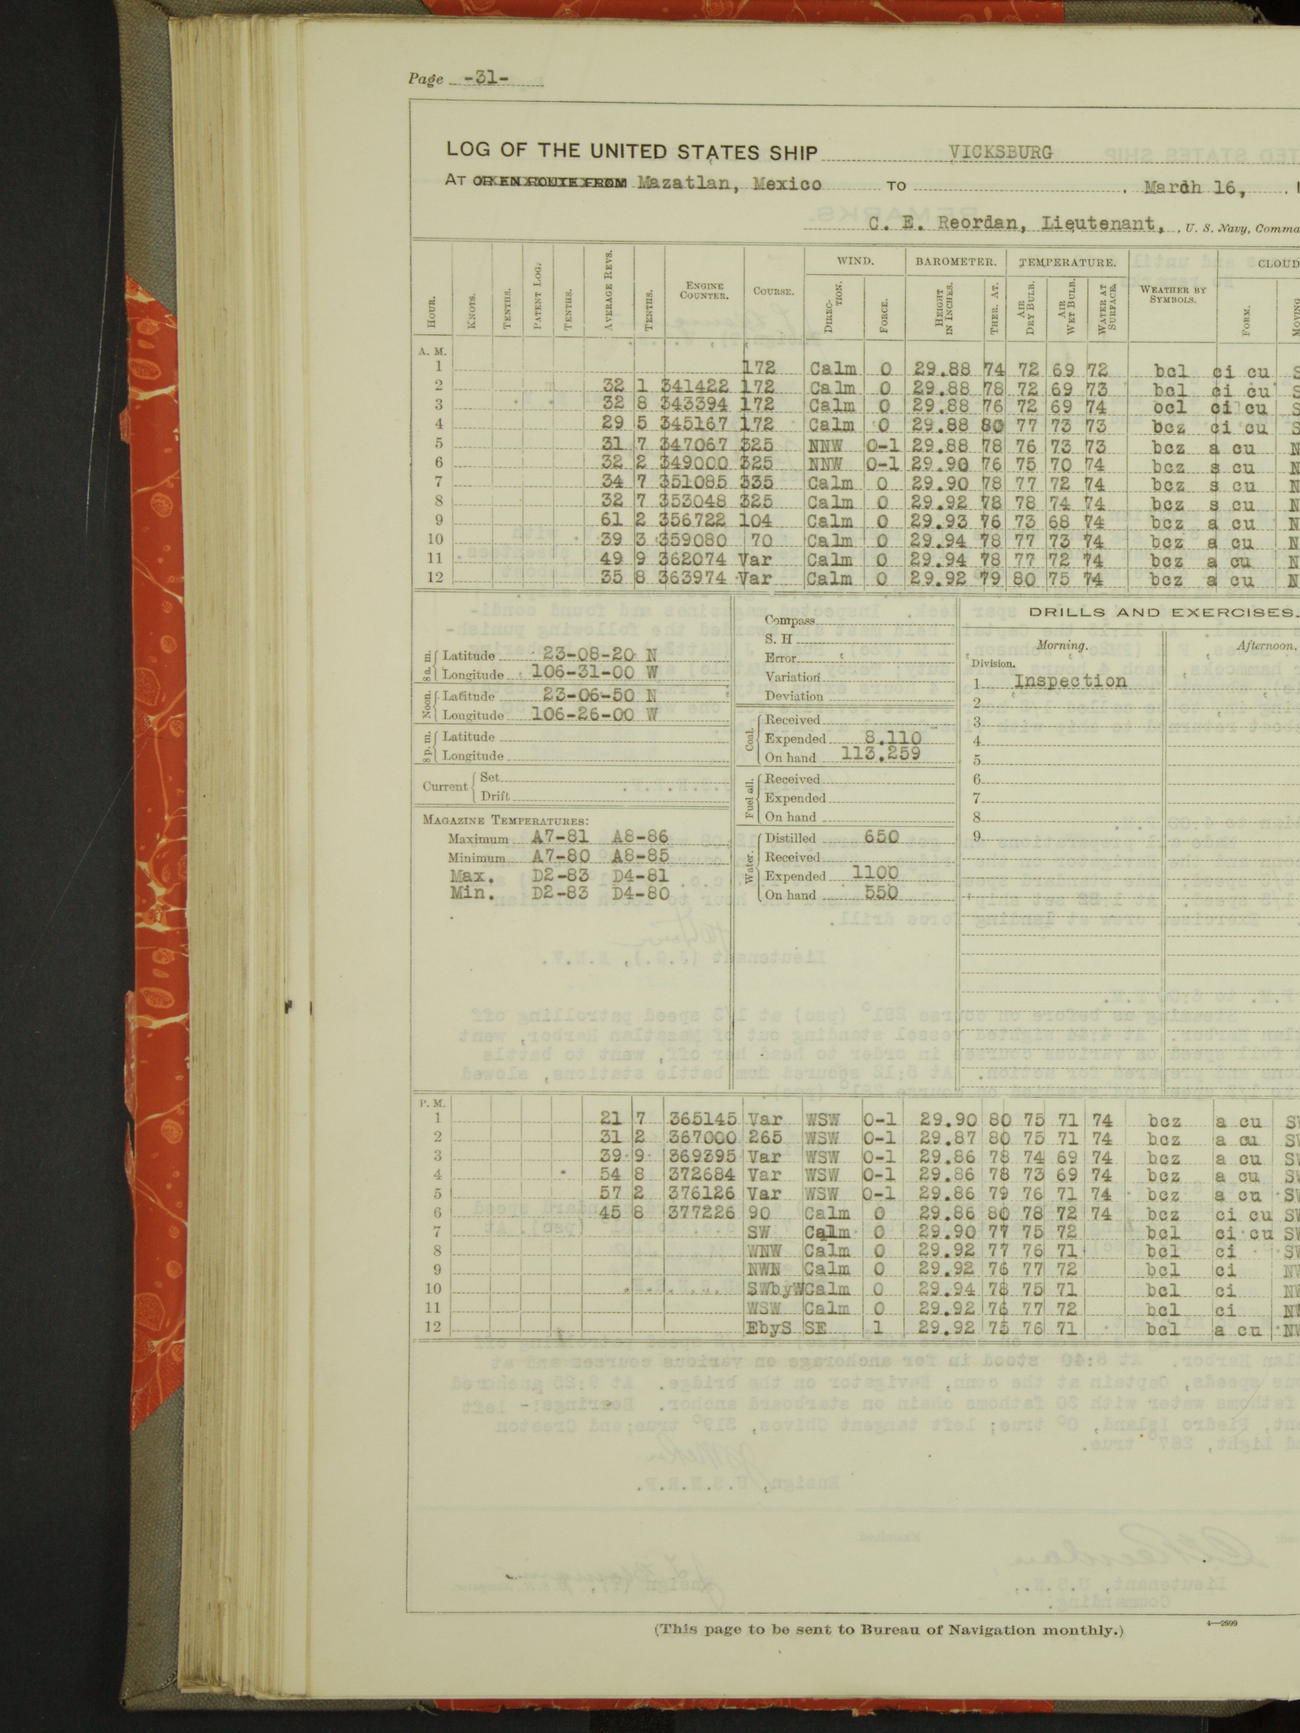 Page -31-
LOG OF THE UNITED STATES SHIP VICKSBURG
AT OR EN ROUTE FROM Mazatlan, Mexico TO , March 16,
C. E. Reordan, Lieutenant, , U. S. Navy, Comma
HOUR. KNOTS. TENTHS. PATENT LOG. TENTHS. AVERAGE REVS. TENTHS. ENGINE COUNTER. COURSE. WIND. DIRECTION. FORCE. BAROMETER. HEIGHT IN INCHES. THER. AT. TEMPERATURE. AIR DRY BULB. AIR WET BULB. WATER AT SURFACE. WEATHER BY SYMBOLS. CLOUD FORM. MOVING
A. M.
1 172 Calm 0 29.88 74 72 69 72 bcl ci cu S
2 32 1 341422 172 Calm 0 29.88 78 72 69 73 bcl ci cu S
3 32 8 343394 172 Calm 0 29.88 76 72 69 74 ocl ci cu S
4 29 5 345167 172 Calm 0 29.88 80 77 73 73 bcz ci cu S
5 31 7 347067 325 NNW 0-1 29.88 78 76 73 73 bcz a cu N
6 32 2 349000 325 NNW 0-1 29.90 76 75 70 74 bcz s cu N
7 34 7 351085 335 Calm 0 29.90 78 77 72 74 bcz s cu N
8 32 7 353048 325 Calm 0 29.92 78 78 74 74 bcz s cu N
9 61 2 356722 104 Calm 0 29.93 76 73 68 74 bcz a cu N
10 39 3 359080 70 Calm 0 29.94 78 77 73 74 bcz a cu N
11 49 9 362074 Var Calm 0 29.94 78 77 72 74 bcz a cu N
12 35 8 363974 Var Calm 0 29.92 79 80 75 74 bcz a cu N
8 a. m. Latitude 23-08-20 N
Longitude 106-31-00 W
Noon. Latitude 23-06-50 N
Longitude 106-26-00 W
8 p. m. Latitude
Longitude
Current Set
Drift
MAGAZINE TEMPERATURES:
Maximum A7-81 A8-86
Minimum A7-80 A8-85
Max. D2-83 D4-81
Min. D2-83 D4-80
Compass
S. H
Error
Variation
Deviation
Coal. Received
Expended 8.110
On hand 113.259
Fuel oil. Received
Expended
On hand
Water. Distilled 650
Received
Expended 1100
On hand 550
DRILLS AND EXERCISES.
Morning. Afternoon.
Division.
1 Inspection
2
3
4
5
6
7
8
9
P. M.
1 21 7 365145 Var WSW 0-1 29.90 80 75 71 74 bcz a cu SW
2 31 2 367000 265 WSW 0-1 29.87 80 75 71 74 bcz a cu SW
3 39 9 369395 Var WSW 0-1 29.86 78 74 69 74 bcz a cu SW
4 54 8 372684 Var WSW 0-1 29.86 78 73 69 74 bcz a cu SW
5 57 2 376126 Var WSW 0-1 29.86 79 76 71 74 bcz a cu SW
6 45 8 377226 90 Calm 0 29.86 80 78 72 74 bcz ci cu SW
7 SW Calm 0 29.90 77 75 72 bcl ci cu SW
8 WNW Calm 0 29.92 77 76 71 bcl ci SW
9 NWN Calm 0 29.92 76 77 72 bcl ci NW
10 SWbyW Calm 0 29.94 78 75 71 bcl ci NW
11 WSW Calm 0 29.92 76 77 72 bcl ci NW
12 EbyS SE 1 29.92 75 76 71 bcl a cu NW
(This page to be sent to Bureau of Navigation monthly.)
4—2609